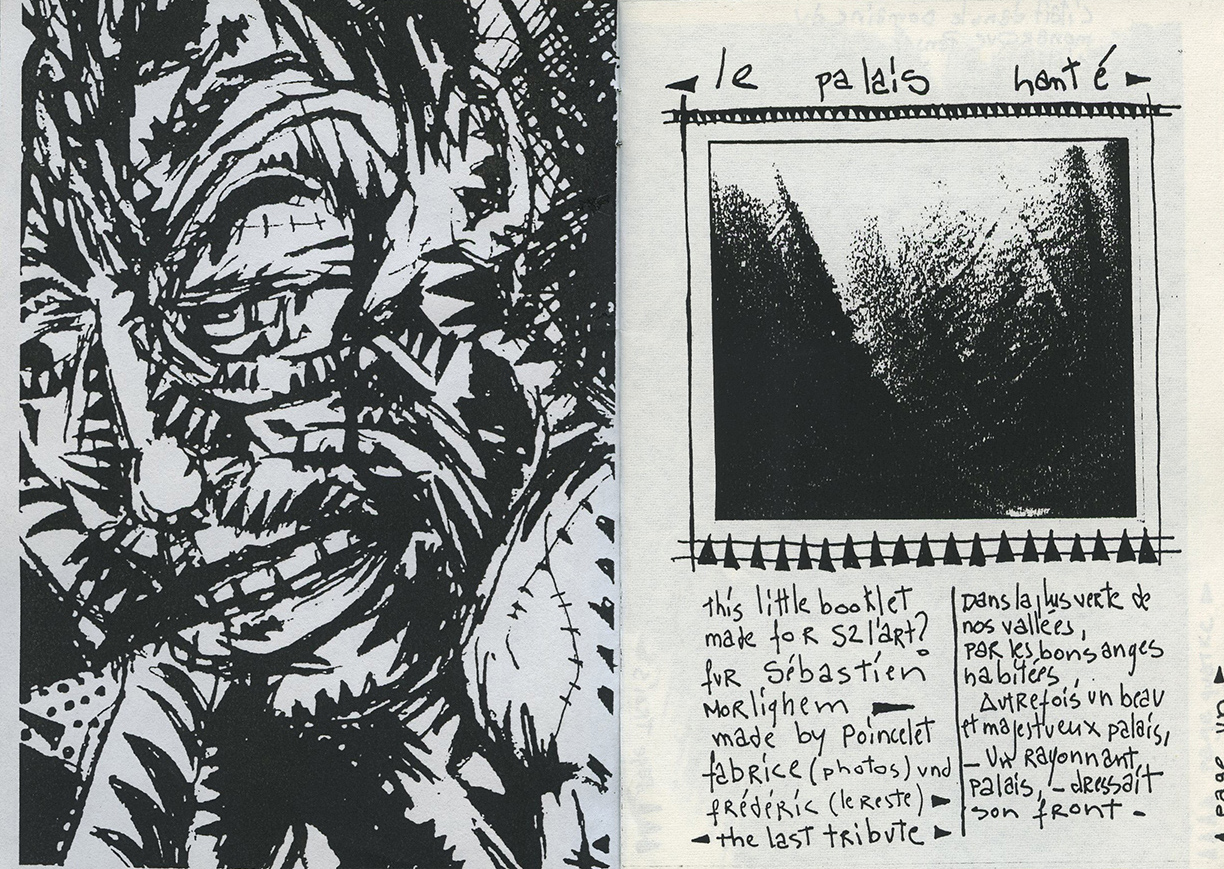 le palais hanté
this little booklet
made foR S2 l'aRt?
fuR Sébastien
MoRlighem
made by Poincelet
fabrice (photos) und
fRédéric (le Reste)
the last tribute
Dans la plus verte de
nos vallées,
paR les bons anges
habitées,
AutRefois un beau
et majestueux palais,
– Un Rayonnant
palais, – dressait
son front –
page un